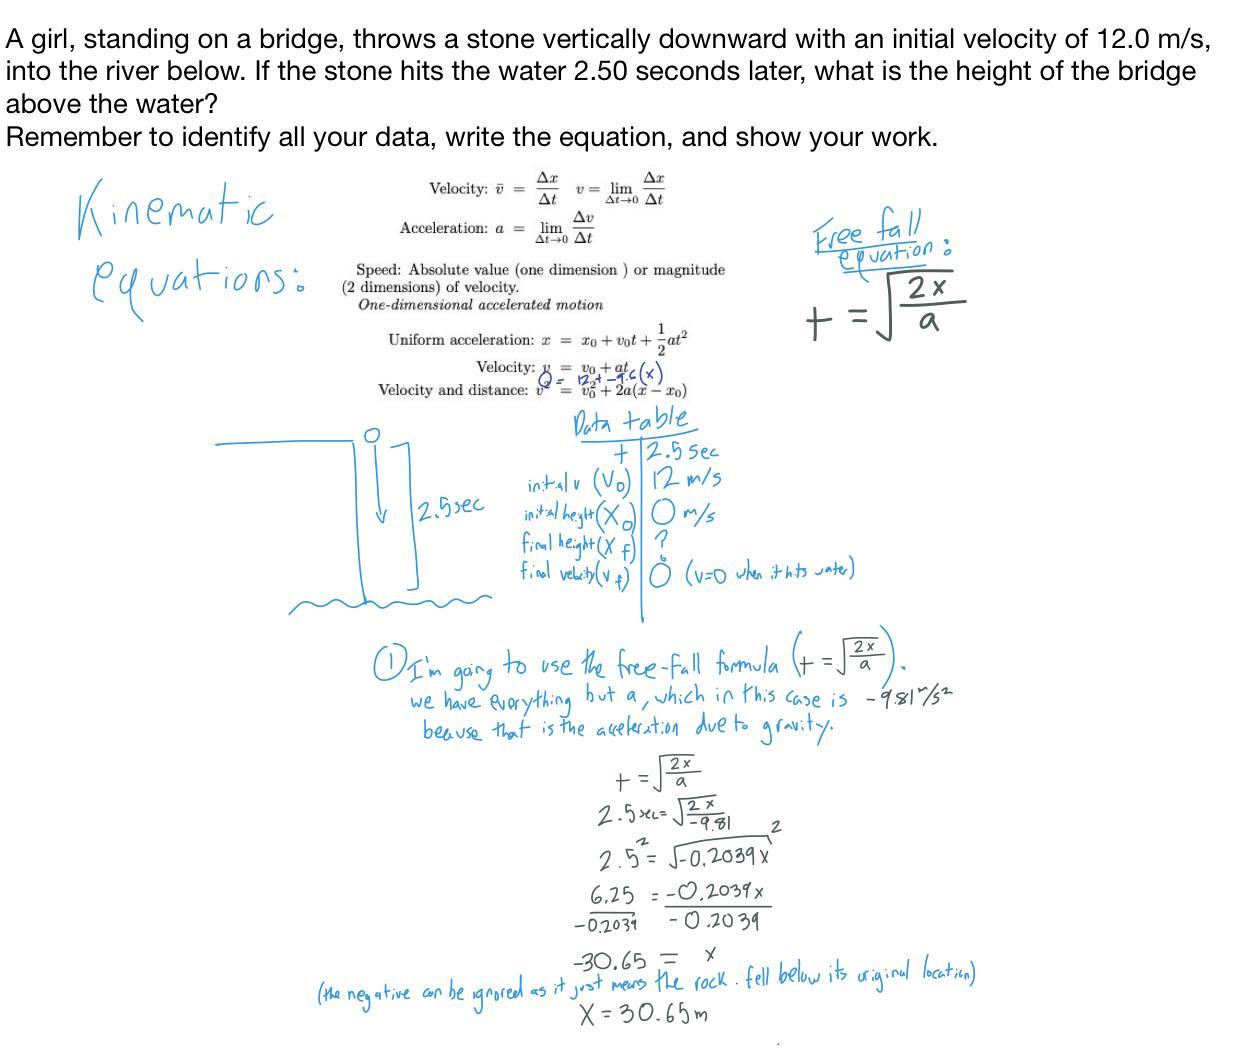 A girl, standing on a bridge, throws a stone vertically downward with an initial velocity of 12.0 m/s,
into the river below. If the stone hits the water 2.50 seconds later, what is the height of the bridge
above the water?
Remember to identify all your data, write the equation, and show your work.
Kinematic
equations:
Velocity: v̄ = Δx/Δt v = lim Δt→0 Δx/Δt
Acceleration: a = lim Δt→0 Δv/Δt
Speed: Absolute value (one dimension ) or magnitude
(2 dimensions) of velocity.
One-dimensional accelerated motion
Uniform acceleration: x = x₀ + v₀t + 1/2 at²
Velocity: v = v₀ + at
Velocity and distance: v² = v₀² + 2a(x − x₀)
Free fall
equation:
t = √(2x/a)
Data table
t 2.5 sec
inital v (V₀) 12 m/s
initial height (X₀) 0 m/s
final height (X f) ?
final velocity (v f) 0 (v=0 when it hits water)
2.5sec
① I'm going to use the free-fall formula (t = √(2x/a)).
we have everything but a, which in this case is -9.81 m/s²
beause that is the acceleration due to gravity.
t = √(2x/a)
2.5 sec = √(2x/-9.81)
2.5² = √(-0.2039x)²
6.25/-0.2039 = -0.2039x/-0.2039
-30.65 = x
(the negative can be ignored as it just means the rock. fell below its original location)
X = 30.65m